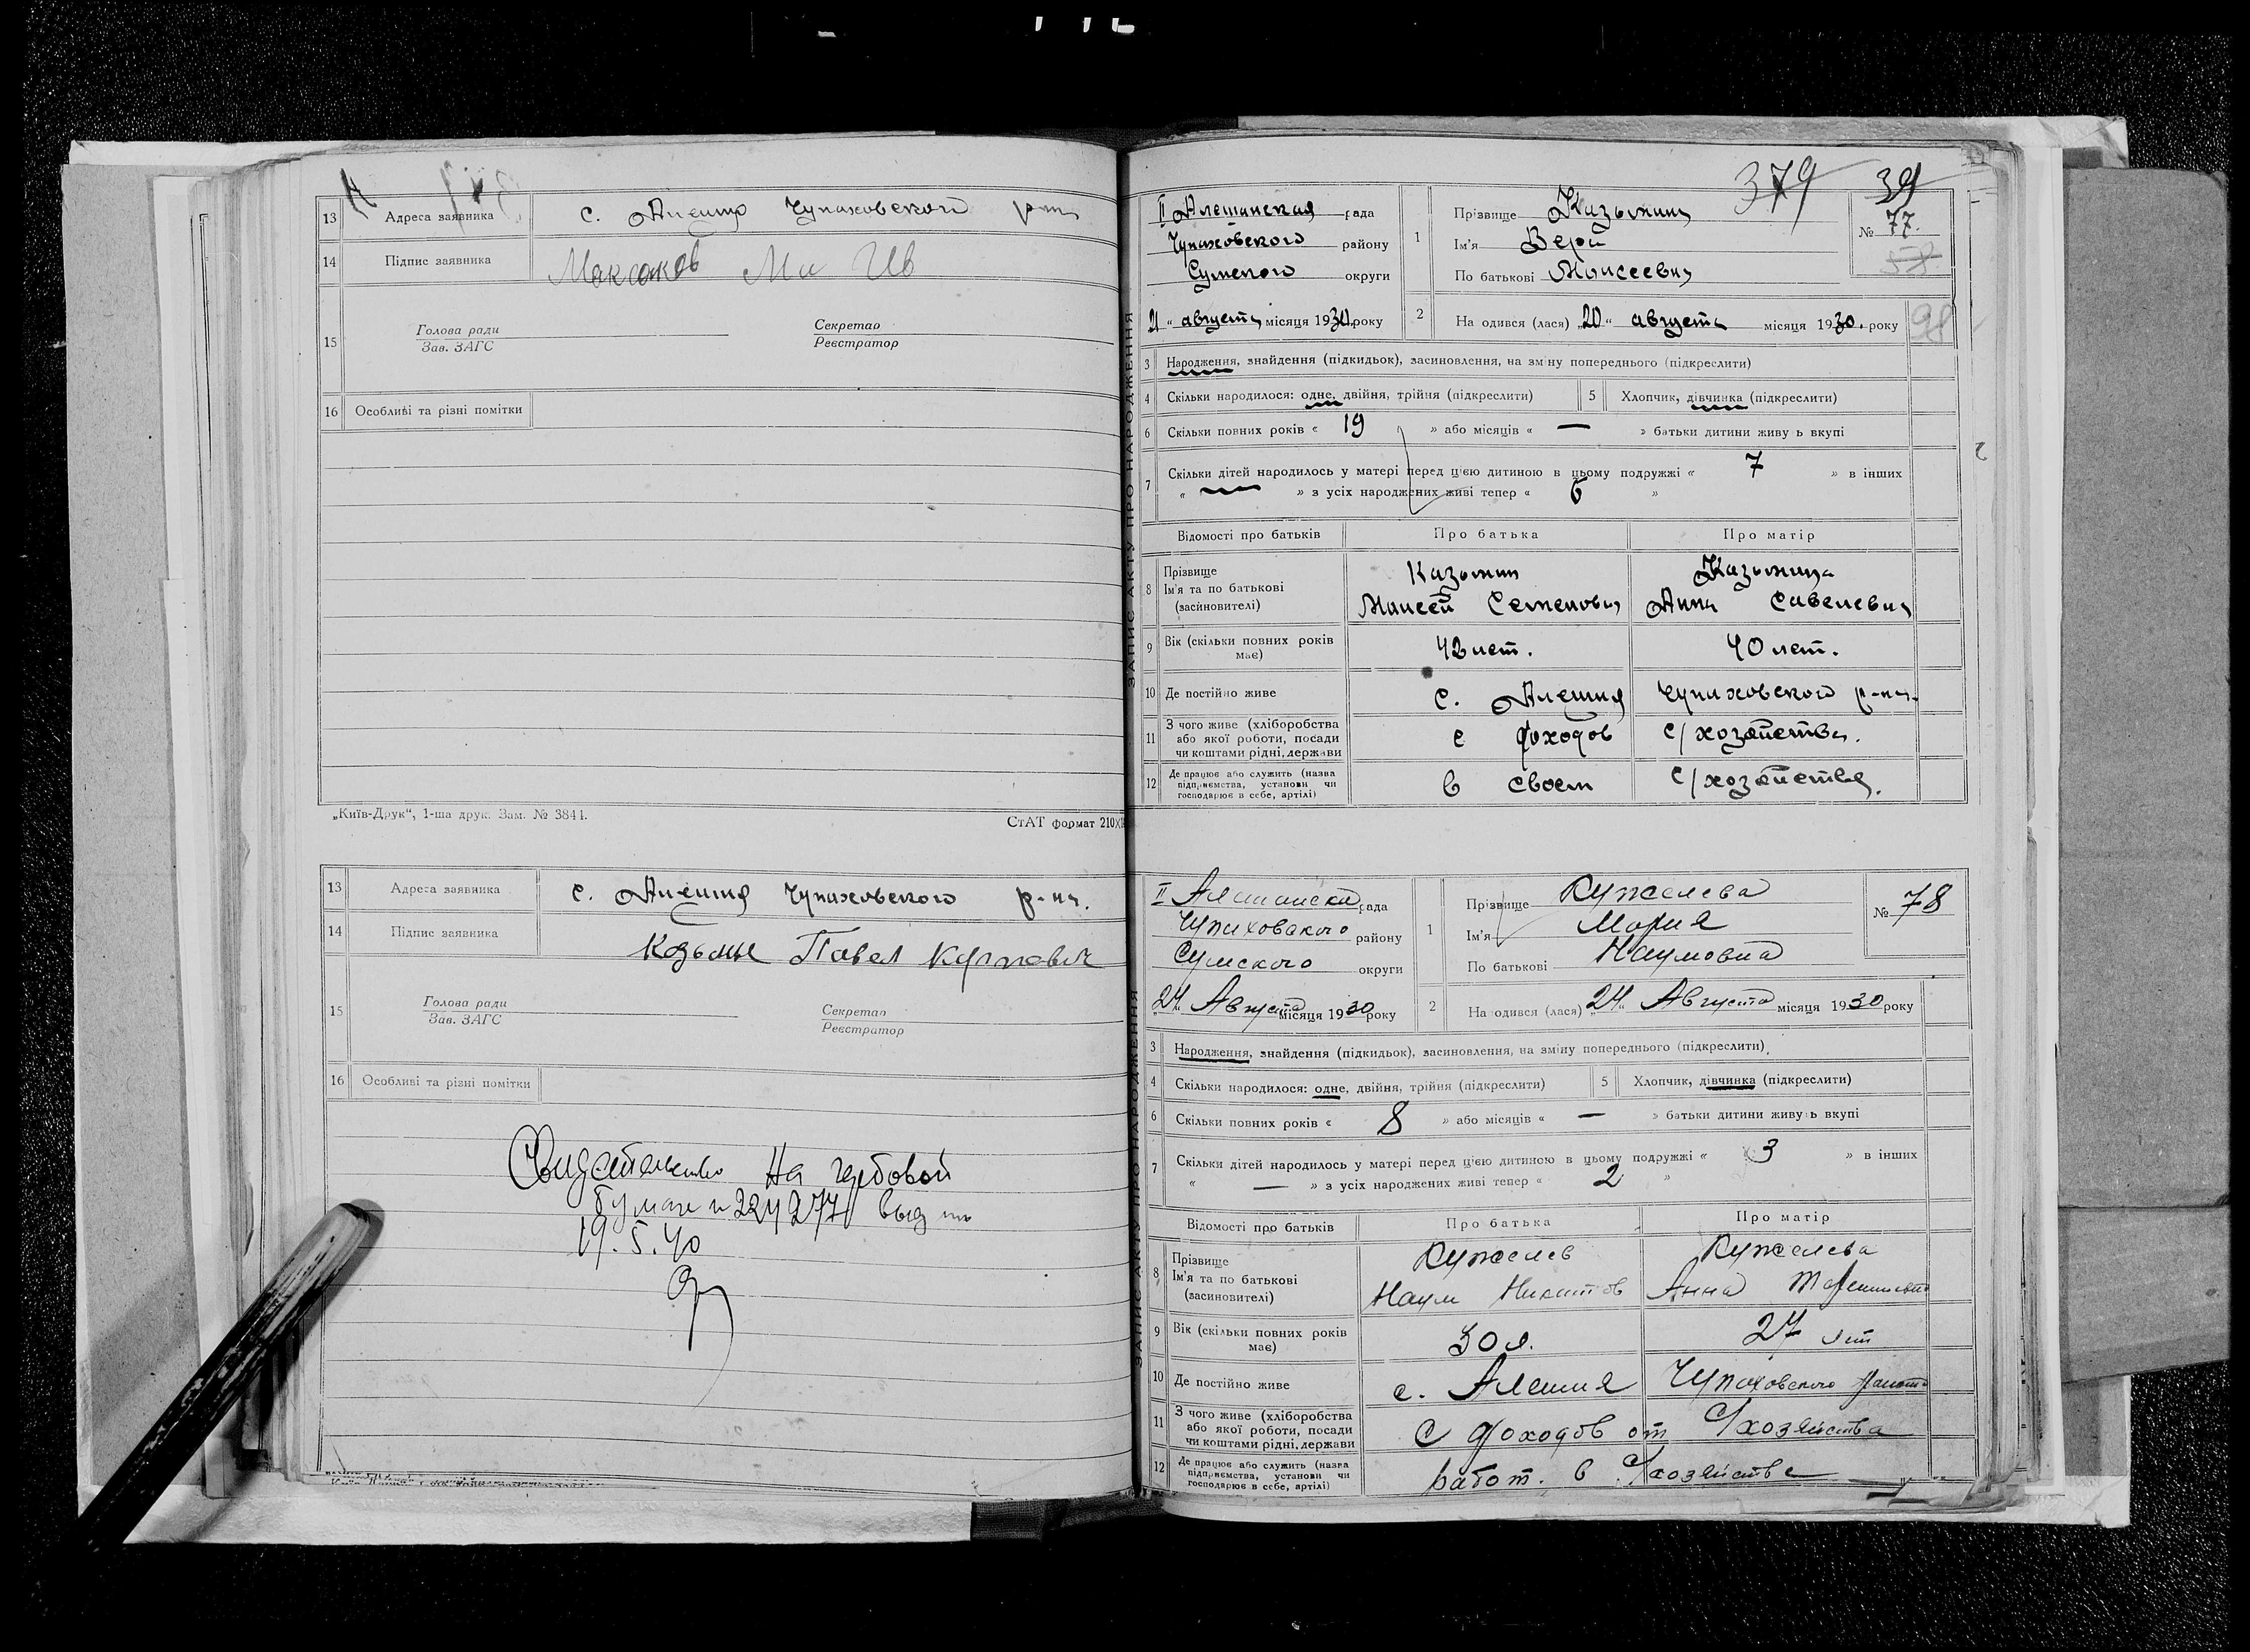 13 Адреса заявника с. Алешня Чупаховского р-на
14 Підпис заявника Максаков Ми Ив
15 Голова ради Секретар
Зав. ЗАГС Реєстратор
16 Особливі та різні помітки
„Київ-Друк“, 1-ша друк. Зам. № 3844.
СтАТ формат 210Х
13 Адреса заявника с. Алешня Чупаховского р-на.
14 Підпис заявника Козьмин Павел Карпович
15 Голова ради Секретар
Зав. ЗАГС Реєстратор
16 Особливі та різні помітки
Свидетельство на гербовой
бумаге
19.5.40
379 39
ЗАПИС АКТУ ПРО НАРОДЖЕННЯ
II Алешанская рада
Чупаховского району
Сумского округи
21 „ августа місяця 1930 року
1 Прізвище Казьмина
Ім'я Вера
По батькові Моисеевна
№ 77.
58
2 На одився (лася) „20“ августа місяця 1930. року
98
3 Народження, знайдення (підкидьок), засиновлення, на зміну попереднього (підкреслити)
4 Скільки народилося: одне, двійня, трійня (підкреслити) 5 Хлопчик, дівчинка (підкреслити)
6 Скільки повних років « 19 » або місяців « — » батьки дитини живу ь вкупі
7 Скільки дітей народилось у матері перед цією дитиною в цьому подружжі « 7 » в інших
« — » з усіх народжених живі тепер « 6 »
Відомості про батьків Про батька Про матір
8 Прізвище Казьмин Казьмина
Ім'я та по батькові Моисей Семенович Анна Савелевна
(засиновителі)
9 Вік (скільки повних років має) 42 лет. 40 лет.
10 Де постійно живе с. Алешня Чупаховского р-на.
11 З чого живе (хліборобства або якої роботи, посади чи коштами рідні, держави с доходов с/хозяйства.
12 Де працює або служить (назва підприємства, установи чи господарює в себе, артілі) в своем с/хозяйстве.
ЗАПИС АКТУ ПРО НАРОДЖЕННЯ
II Алешанска рада
Чупаховского району
Сумского округи
„24“ Августа місяця 1930 року
1 Прізвище Кужелева
Ім'я Мария
По батькові Наумовна
№ 78
2 На одився (лася) „24“ Августа місяця 1930 року
3 Народження, знайдення (підкидьок), засиновлення, на зміну попереднього (підкреслити)
4 Скільки народилося: одне, двійня, трійня (підкреслити) 5 Хлопчик, дівчинка (підкреслити)
6 Скільки повних років « 8 » або місяців « — » батьки дитини живу ь вкупі
7 Скільки дітей народилось у матері перед цією дитиною в цьому подружжі « 3 » в інших
« — » з усіх народжених живі тепер « 2 »
Відомості про батьків Про батька Про матір
8 Прізвище Кужелев Кужелева
Ім'я та по батькові Наум Никитов Анна
(засиновителі)
9 Вік (скільки повних років має) 30 л. 27 лет
10 Де постійно живе с. Алешня Чупаховского
11 З чого живе (хліборобства або якої роботи, посади чи коштами рідні, держави с доходов от с/хозяйства
12 Де працює або служить (назва підприємства, установи чи господарює в себе, артілі) работ. в с/хозяйстве